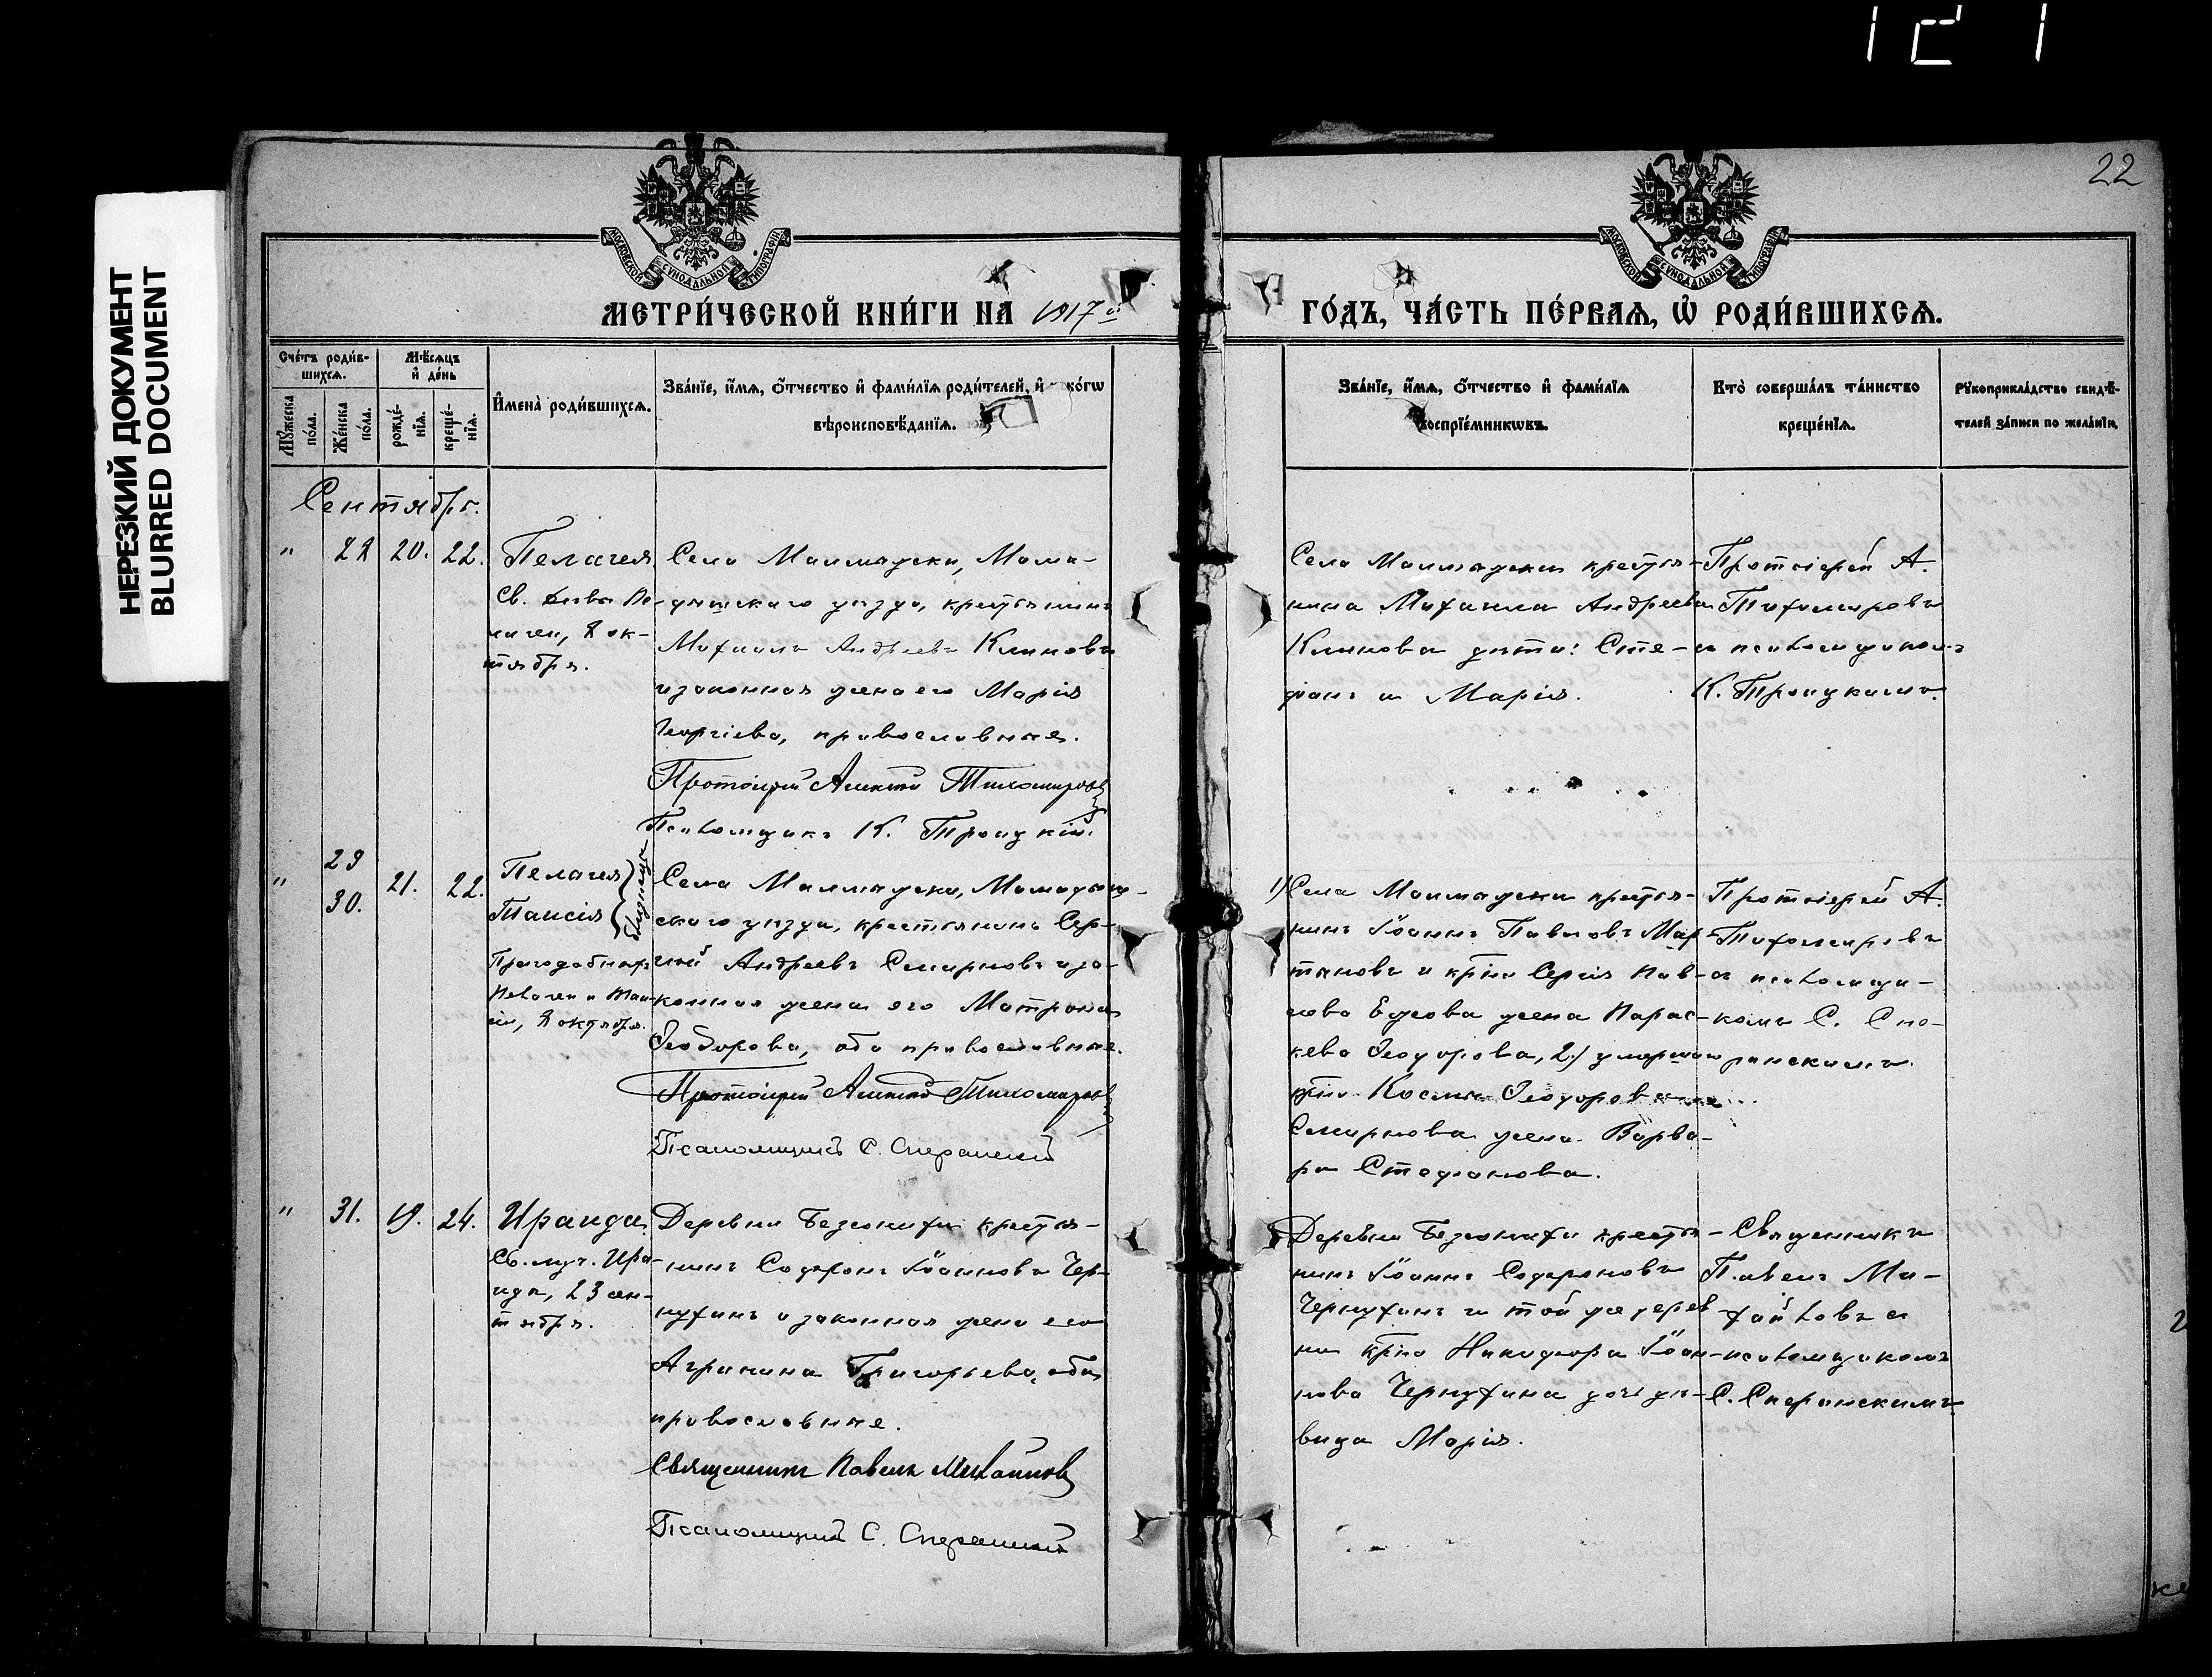 НЕРЕЗКИЙ ДОКУМЕНТ
BLURRED DOCUMENT
22
МОСКОВСКОЙ СѴНОДАЛЬНОЙ ТИПОГРАФІИ
МОСКОВСКОЙ СѴНОДАЛЬНОЙ ТИПОГРАФІИ
МЕТРИ́ЧЕСКОЙ КНИ́ГИ НА 1917й
ГО́ДЪ, ЧА́СТЬ ПЕ́РВАѦ, Ѡ РОДИ́ВШИХСѦ.
Сче́тъ роди́в-
шихсѧ.
Мѣ́сѧцъ
и де́нь
Мꙋ́жеска
по́ла.
Же́нска
по́ла.
рожде́-
нїѧ.
креще́-
нїѧ.
Имена̀ роди́вшихсѧ.
Зва́нїе, и́мѧ, о́тчество и фами́лїѧ роди́телей, и кого
вѣроисповѣ́данїѧ.
Зва́нїе, и́мѧ, о́тчество и фами́лїѧ
воспрїе́мникѡвъ.
Кто̀ соверша́лъ та́инство
креще́нїѧ.
Рꙋкоприкла́дство свидѣ́-
телей за́писи по жела́нїю.
Сентябрь.
" 28 20. 22.
Пелагея
Св. девы Пе-
лагеи, 8 ок-
тября.
Села Малмыжки, Мама-
дышскаго уѣзда, крестьянинъ
Михаилъ Андреевъ Климовъ
и законная жена его Марія
Георгіева, православные.
Протоіерей Алексій Тихомировъ
Псаломщикъ К. Троицкій.
крестья-
нина Михаила Андреева
Климова дѣти: Сте-
фанъ и Марія.
Протоіерей А.
Тихомировъ
и псаломщикомъ
К. Троицкимъ.
" 29
30. 21. 22.
Пелагея
Таисія
близнецы
Преподобныхъ
Пелагеи и Таи-
сіи, 8 октября.
Села Мамадыш-
скаго уѣзда, крестьянинъ Сер-
гій Андреевъ Смирновъ и за-
конная жена его Матрона
Ѳеодорова, оба православные.
Протоіерей Алексій Тихомировъ
Псаломщикъ С. Сперанскій
1) Села крестья-
нинъ Іоаннъ Павловъ Мар-
тыновъ и кр̅на Сергія Пав-
лова жена Парас-
кева Ѳеодорова, 2) умершаго
кр̅на Косьмы Ѳеодорова
Смирнова жена Варва-
ра Стефанова.
Протоіерей А.
Тихомировъ
и псаломщи-
комъ С. Спе-
ранскимъ.
" 31. 19. 24.
Ираида
Св. муч. Ира-
иды, 23 сен-
тября.
Деревни крестья-
нинъ Софронъ Іоанновъ Чер-
нухинъ и законная жена его
Агрипина Григорьева, оба
православные.
Священникъ Павелъ Михайловъ
Псаломщикъ С. Сперанскій
Деревни крестья-
нинъ Іоаннъ Софроновъ
Чернухинъ и той же дерев-
ни кр̅на Никифора Іоан-
нова Чернухина дочь дѣ-
вица Марія.
Священникъ
Павелъ Ми-
хайловъ и
псаломщикомъ
С. Сперанскимъ.